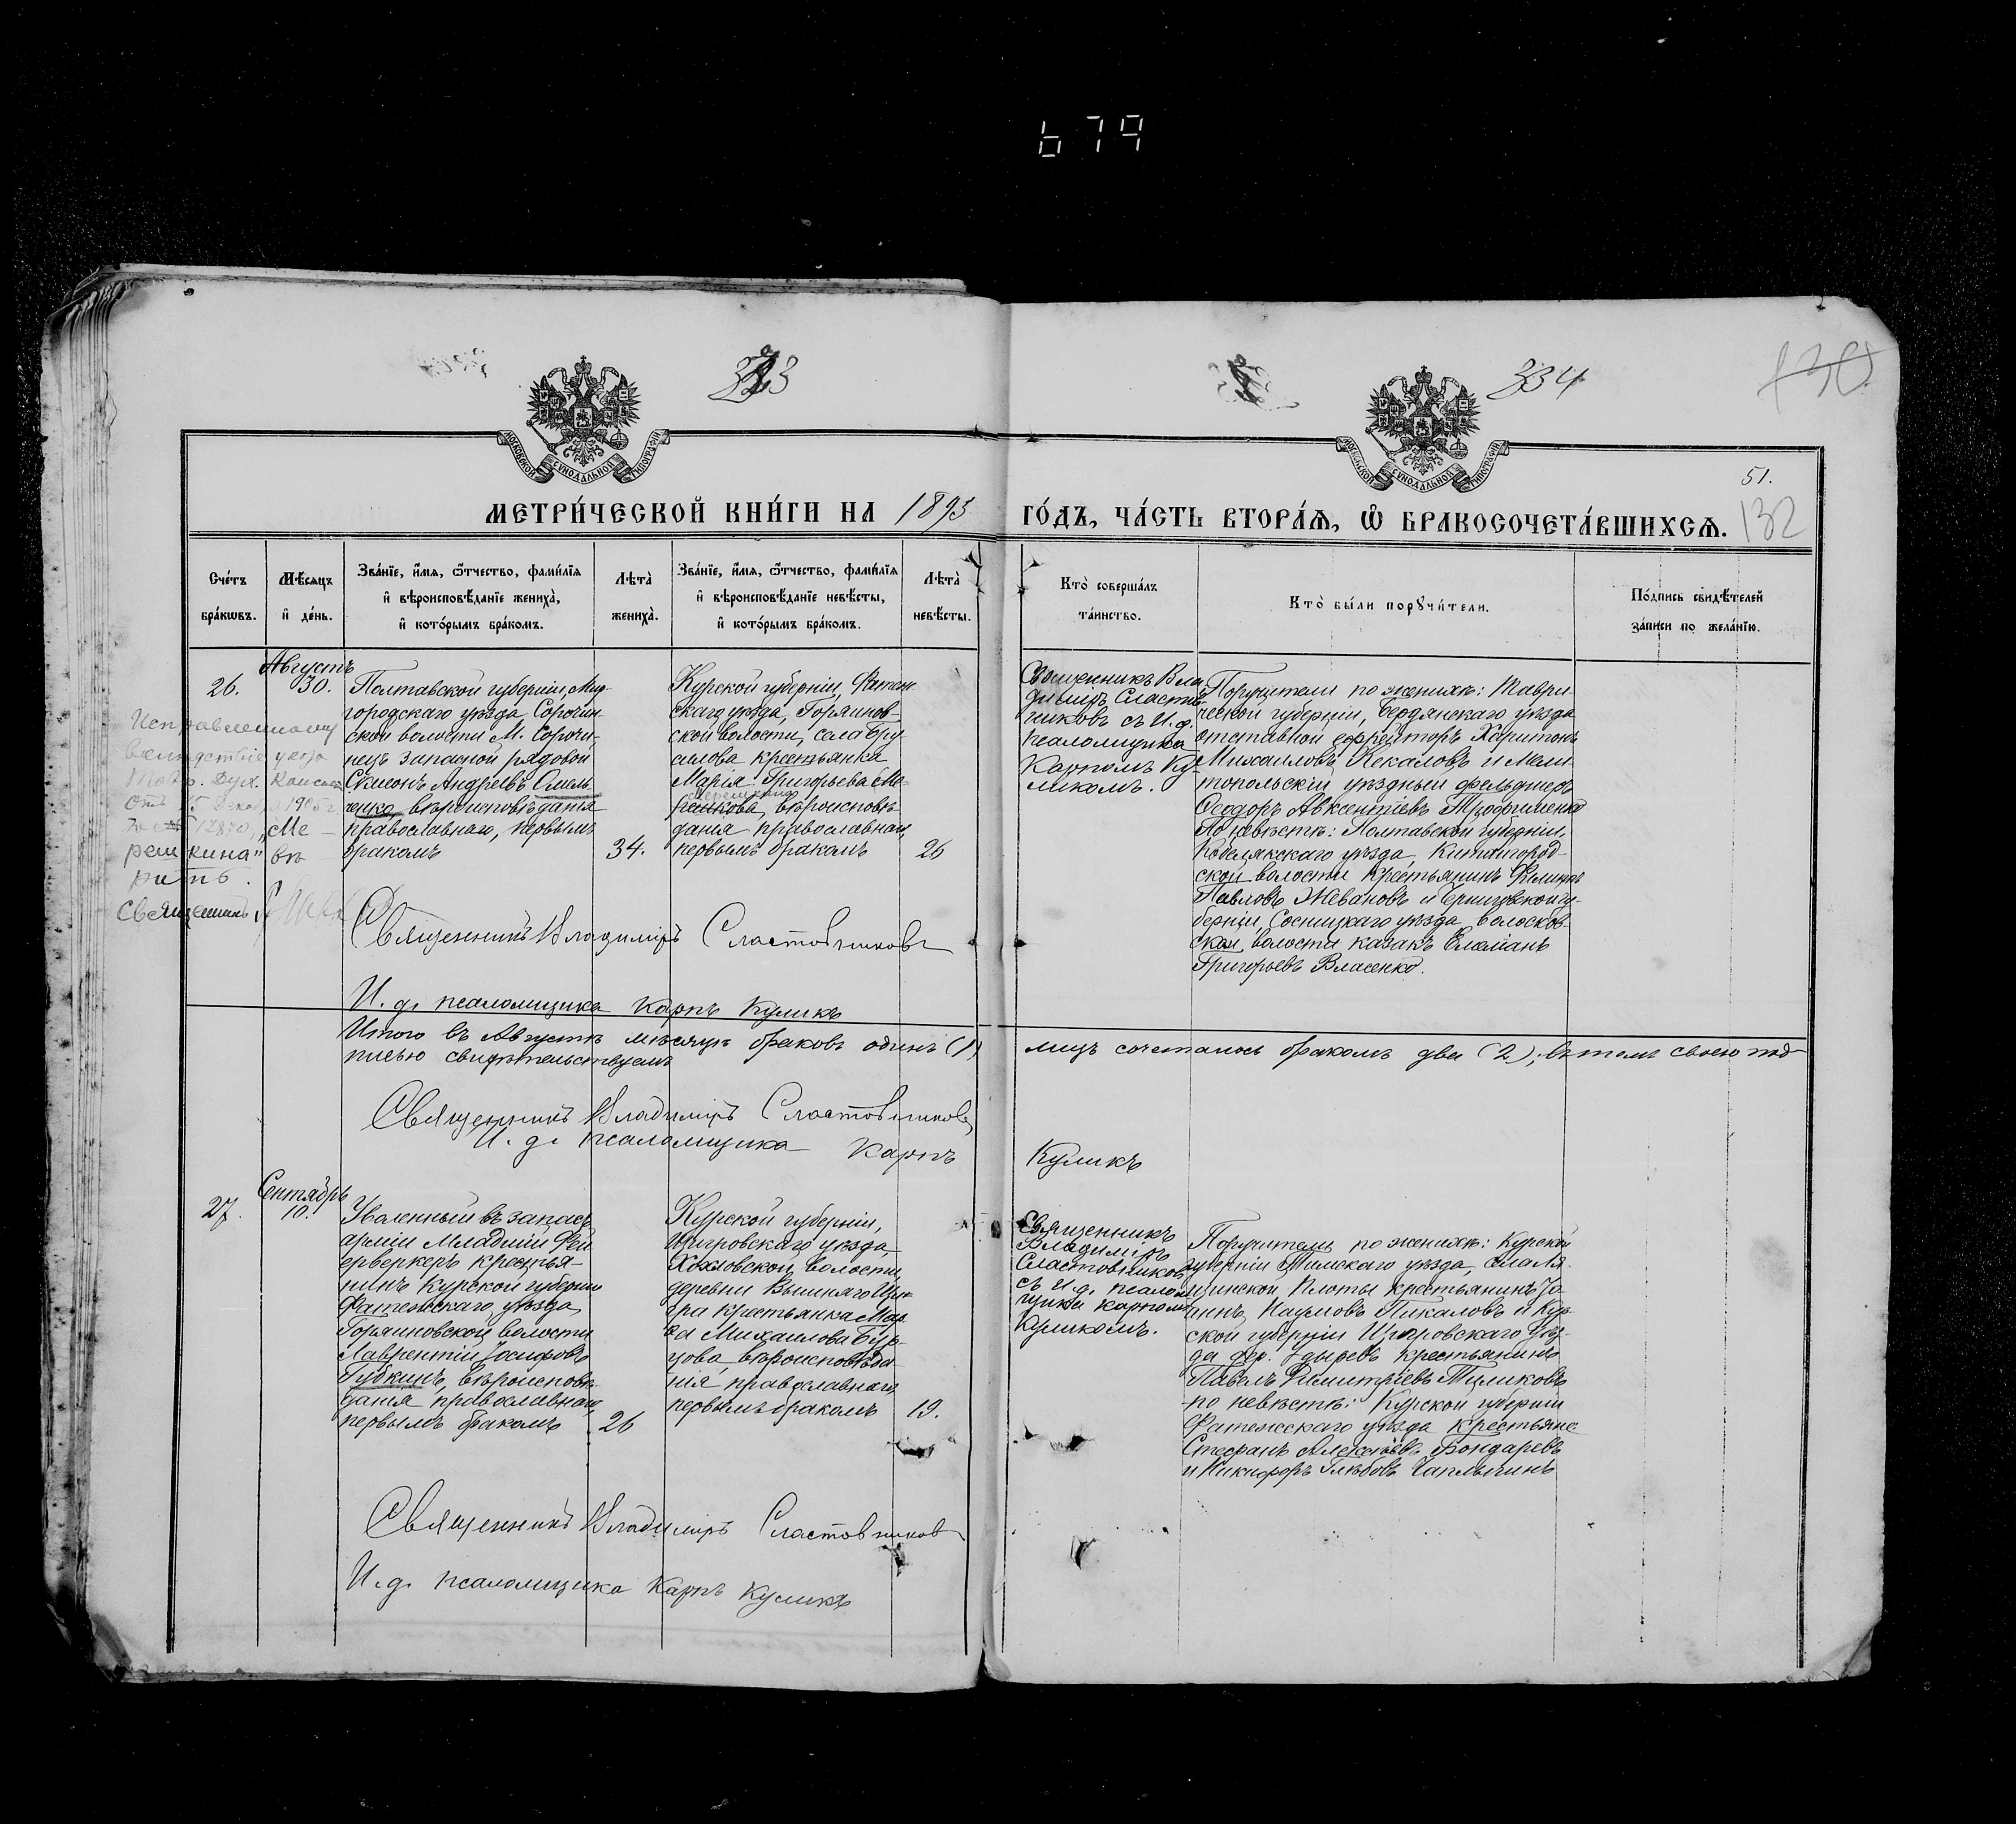 679
333
334
130
МОСКОВСКОЙ СУНОДАЛЬНОЙ ТИПОГРАФІИ
МОСКОВСКОЙ СУНОДАЛЬНОЙ ТИПОГРАФІИ
51.
132
МЕТРИ́ЧЕСКОЙ КНИ́ГИ НА 1893
ГО́ДЪ, ЧА́СТЬ ВТОРА́Ѧ, Ѽ БРАКОСОЧЕТА́ВШИХСѦ.
Сче́тъ
бра́кѡвъ.
Мѣ́сяцъ
и҆ де́нь.
Зва́нїе, и҆́мя, ѻ҆́тчество, фами́лїя
и҆ вѣроисповѣ́данїе жениха̀,
и҆ кото́рымъ бра́комъ.
Лѣта̀
жениха̀.
Зва́нїе, и҆́мя, ѻ҆́тчество, фами́лїя
и҆ вѣроисповѣ́данїе невѣ́сты,
и҆ кото́рымъ бра́комъ.
Лѣта̀
невѣ́сты.
Кто̀ соверша́лъ
та́инство.
Кто̀ бы́ли порꙋчи́тели.
По́дпись свидѣ́телей
за́писи по жела́нїю.
26.
Августъ
30.
Полтавской губерніи, Мир-
городскаго уѣзда Сорочин-
ской волости М. Сорочи-
нецъ запасной рядовой
Андреевъ Омель-
ченко, вѣроисповѣданія
православнаго, первымъ
бракомъ
34.
Курской губерніи, Фатеж-
скаго уѣзда, Горяинов-
ской волости, села Бру-
силова крестьянка
Марія Григорьева Ме-
решкина
решкова, вѣроисповѣ-
данія православнаго,
первымъ бракомъ
26
Исправленному
вслѣдствіе указа
Тавр. Дух. Консист.
отъ 15 Декабр 1905 г.
за № 12870, „Ме-
решкина" вѣ-
рить.
Священникъ
Священникъ Вла-
диміръ Сластов-
никовъ съ И. д.
псаломщика
Карпомъ Ку-
ликомъ.
Поручители по женихѣ: Таври-
ческой губерніи, Бердянскаго уѣзда
отставной ефрейторъ Харитонъ
Михаиловъ Кекаловъ и Мели-
топольскій уѣздный фельдшеръ
Ѳеодоръ Авксентіевъ Трофименко
По невѣстѣ: Полтавской губерніи,
Кобелякскаго уѣзда, Китайгород-
ской волости крестьянинъ Филиппъ
Павловъ Жевановъ и Черниговской гу-
берніи, Сосницкаго уѣзда, Волосков-
ской волости казакъ
Григорьевъ Власенко.
Священникъ Владиміръ Сластовниковъ
И. д. псаломщика Карпъ Куликъ
Итого въ Августѣ мѣсяцѣ браковъ одинъ (1) лицъ сочеталось бракомъ два (2); въ томъ своею под-
писью свидѣтельствуемъ
Священникъ Владиміръ Сластовниковъ
И. д. псаломщика Карпъ Куликъ
27.
Сентябрь
10.
Уволенный въ запасъ
арміи младшій Фей-
ерверкеръ крестья-
нинъ Курской губерніи
Фатежскаго уѣзда,
Горяиновской волости
Лаврентій Іосифовъ
Губкинъ, вѣроисповѣ-
данія православнаго,
первымъ бракомъ
26
Курской губерніи,
Щигровскаго уѣзда,
Хохловской волости,
деревни Вышняго Щи-
гра крестьянка Мар-
ѳа Михаилова Бур-
цова, вѣроисповѣда-
нія православнаго,
первымъ бракомъ
19.
Священникъ
Владиміръ
Сластовниковъ
съ И. д. псалом-
щика Карпомъ
Куликомъ.
Поручители по женихѣ: Курской
губерніи Тимскаго уѣзда, села
Плоты крестьянинъ Іо-
аннъ Наумовъ Пикаловъ и Кур-
ской губерніи Щигровскаго уѣз-
да дер. крестьянинъ
Павелъ Димитріевъ
по невѣстѣ: Курской губерніи
Фатежскаго уѣзда крестьяне
Стефанъ Алексѣевъ Бондаревъ
и Никифоръ Глѣбовъ Чаплыгинъ
Священникъ Владиміръ Сластовниковъ
И. д. псаломщика Карпъ Куликъ